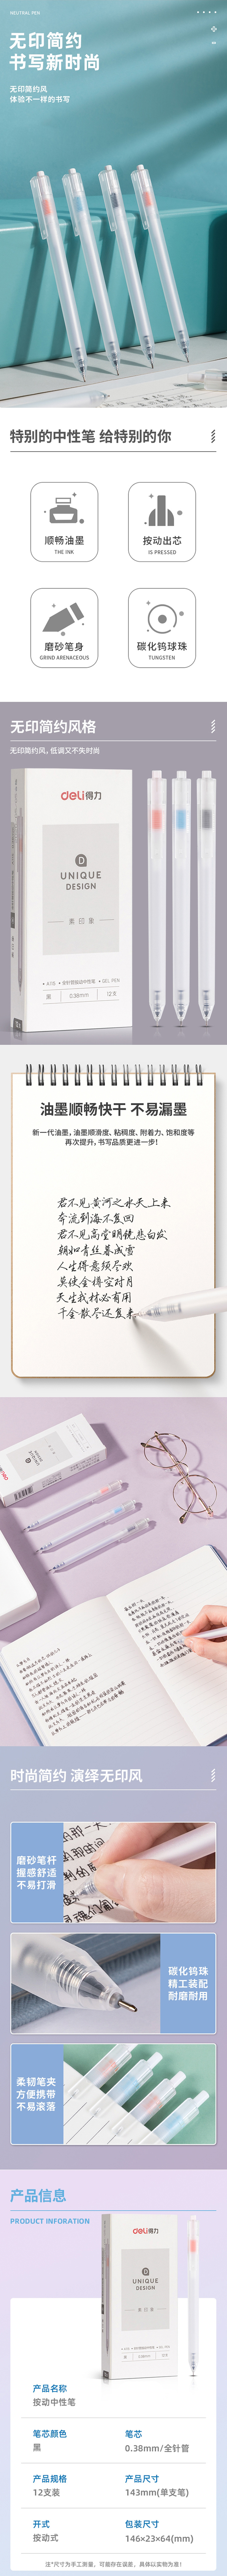 NEUTRAL PEN
无印简约
书写新时尚
无印简约风
体验不一样的书写
特别的中性笔 给特别的你
顺畅油墨
THE INK
按动出芯
IS PRESSED
磨砂笔身
GRIND ARENACEOUS
碳化钨球珠
TUNGSTEN
无印简约风格
无印简约风，低调又不失时尚
deli得力
UNIQUE
DESIGN
素印象
A108 全针管按动中性笔 GEL PEN
黑 0.38mm 12支
油墨顺畅快干 不易漏墨
新一代油墨，油墨顺滑度、粘稠度、附着力、饱和度等
再次提升，书写品质更进一步！
君不见黄河之水天上来
奔流到海不复回
君不见高堂明镜悲白发
朝如青丝暮成雪
人生得意须尽欢
莫使金樽空对月
天生我材必有用
千金散尽还复来
时尚简约 演绎无印风
磨砂笔杆
握感舒适
不易打滑
碳化钨珠
精工装配
耐磨耐用
柔韧笔夹
方便携带
不易滚落
产品信息
PRODUCT INFORATION
deli得力
UNIQUE
DESIGN
素印象
产品名称
按动中性笔
笔芯颜色
黑
笔芯
0.38mm/全针管
产品规格
12支装
产品尺寸
143mm(单支笔)
开式
按动式
包装尺寸
146×23×64(mm)
注*尺寸为手工测量，可能存在误差，具体以实物为准！